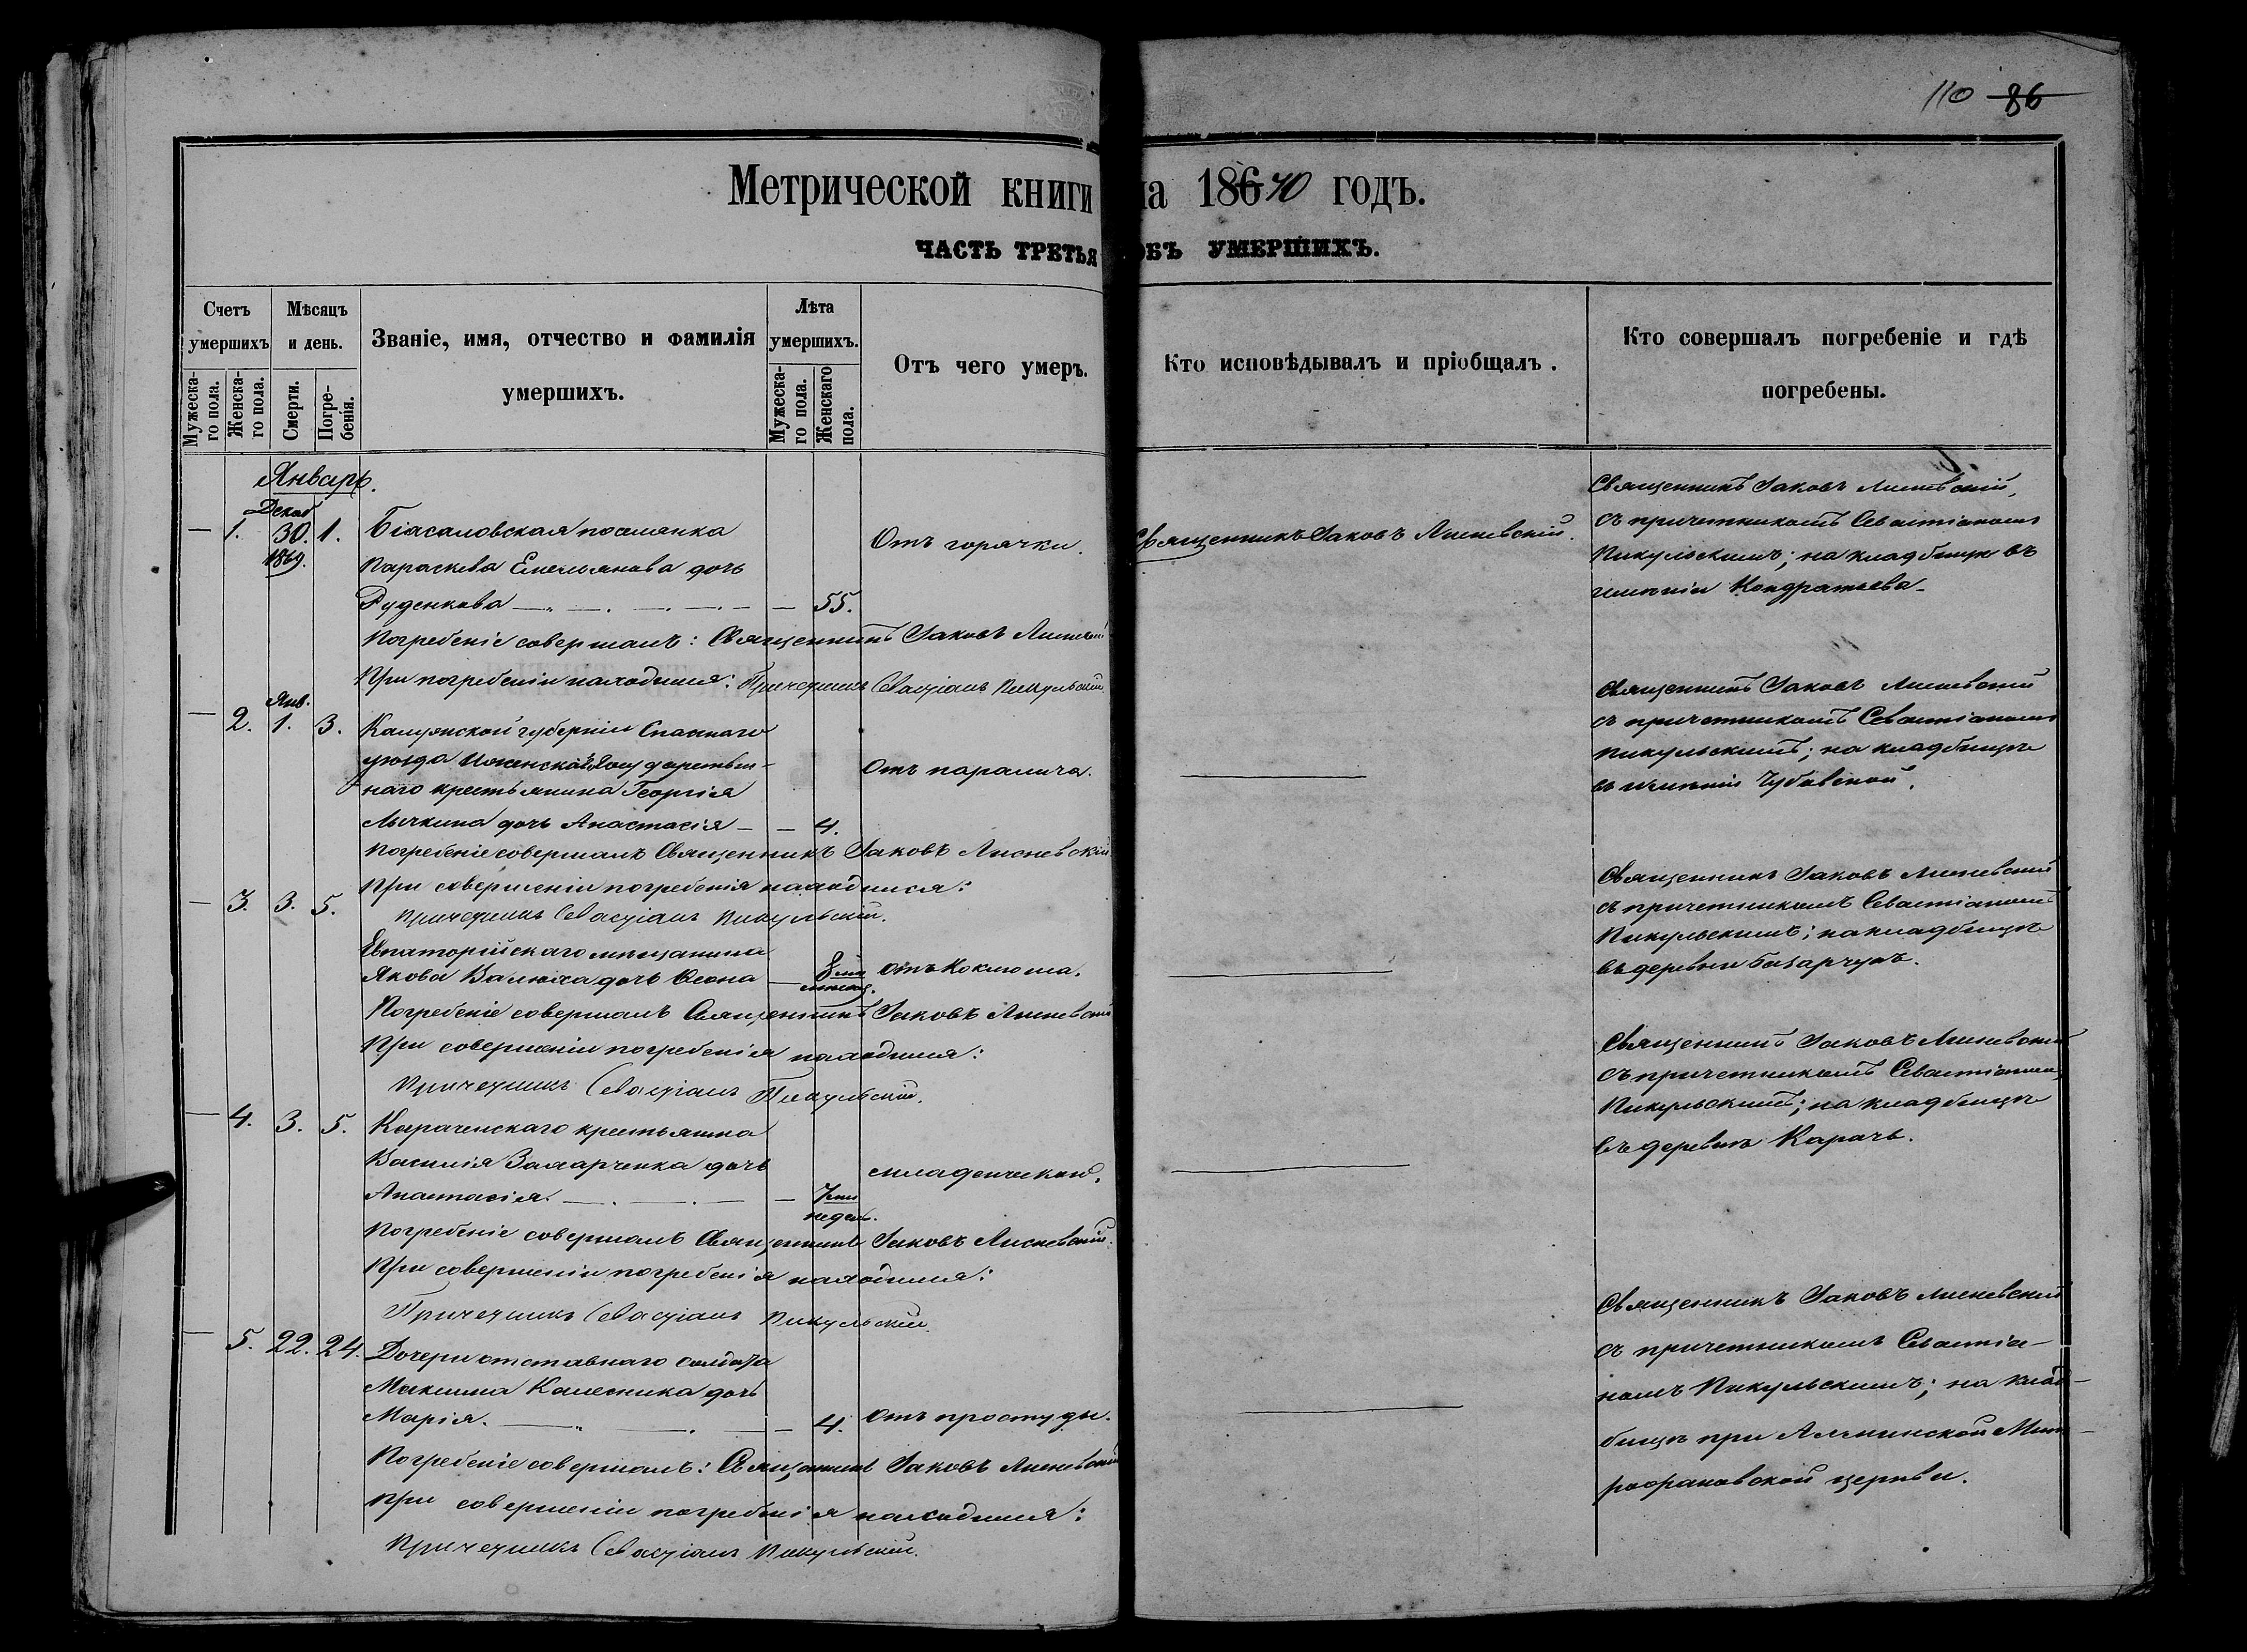 110 86
Метрической книги на 18670 годъ.
ЧАСТЬ ТРЕТЬЯ ОБЪ УМЕРШИХЪ.
Счетъ умершихъ
Мужеска-го пола.
Женска-го пола.
Мѣсяцъ и день.
Смерти.
Погре-бенія.
Званіе, имя, отчество и фамилія
умершихъ.
Лѣта умершихъ.
Мужеска-го пола.
Женскаго пола.
Отъ чего умеръ.
Кто исповѣдывалъ и пріобщалъ.
Кто совершалъ погребеніе и гдѣ
погребены.
Январь.
Декаб
— 1. 30. 1. Біасаловская поселянка
1869.
Параскева Емельянова дочь
Руденкова — 55.
Отъ горячки.
Священникъ Іаковъ Лисневскій.
Священникъ Іаковъ Лисневскій,
съ причетникомъ Севастіаномъ
Пикульскимъ; на кладбищѣ въ
имѣніи Кондратьева.
Погребеніе совершалъ: Священникъ Іаковъ Лисневскій
При погребеніи находился: Причетникъ Севастіанъ Пикульскій.
Янв.
— 2. 1. 3. Калужской губерніи
уѣзда государствен-
наго крестьянина Георгія
Лычкина дочь Анастасія — 4.
Отъ паралича.
Священникъ Іаковъ Лисневскій
съ причетникомъ Севастіаномъ
Пикульскимъ; на кладбищѣ
въ имѣніи
Погребеніе совершалъ Священникъ Іаковъ Лисневскій
При совершеніи погребенія находился:
Причетникъ Севастіанъ Пикульскій.
— 3. 3. 5.
Евпаторійскаго мѣщанина
Якова дочь — 8 ми
мѣсяц.
Отъ коклюша.
Священникъ Іаковъ Лисневскій
съ причетникомъ Севастіаномъ
Пикульскимъ; на кладбищѣ
въ деревни Базарчукъ.
Погребеніе совершалъ Священникъ Іаковъ Лисневскій
При совершеніи погребенія находился:
Причетникъ Севастіанъ Пикульскій.
— 4. 3. 5. Карачскаго крестьянина
Василія Захарченка дочь
Анастасія. — 7 ми
недель.
младенческой.
Священникъ Іаковъ Лисневскій
съ причетникомъ Севастіаномъ
Пикульскимъ; на кладбищѣ
въ деревнѣ Карачь.
Погребеніе совершалъ Священникъ Іаковъ Лисневскій.
При совершеніи погребенія находился:
Причетникъ Севастіанъ Пикульскій.
— 5. 22. 24. Дочери отставнаго солдата
Максима Калесника дочь
Марія. — 4.
Отъ простуды.
Священникъ Іаковъ Лисневскій
съ причетникомъ Севастіа-
номъ Пикульскимъ; на клад-
бищѣ при Алминской Мит-
рофановской церкви.
Погребеніе совершалъ: Священникъ Іаковъ Лисневскій
При совершеніи погребенія находился:
Причетникъ Севастіанъ Пикульскій.